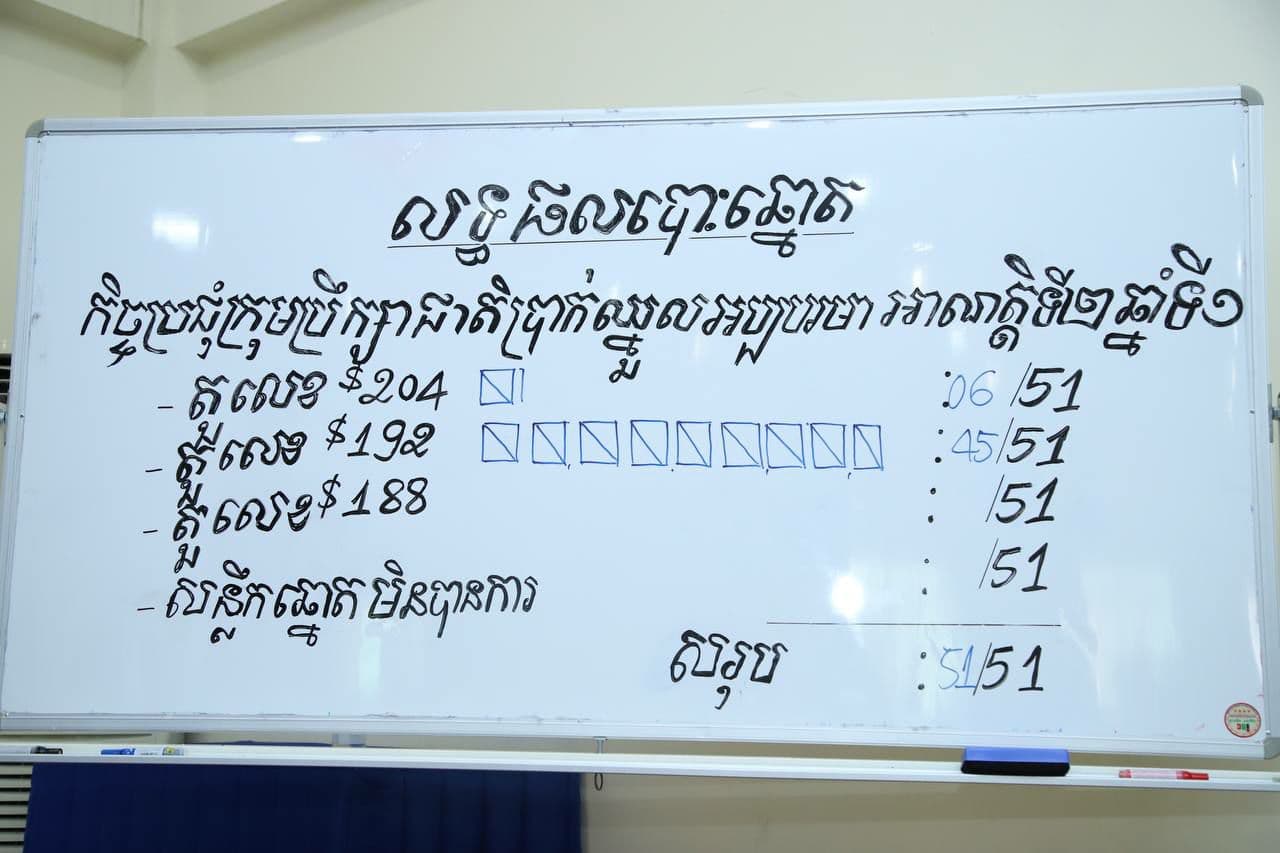 លទ្ធផលបោះឆ្នោត
កិច្ចប្រជុំក្រុមប្រឹក្សាជាតិប្រាក់ឈ្នួលអប្បបរមា អាណត្តិទី២ ឆ្នាំទី១
- តួលេខ $204 :06/51
- តួលេខ $192 :45/51
- តួលេខ $188 : /51
- សន្លឹកឆ្នោតមិនបានការ : /51
សរុប :51/51